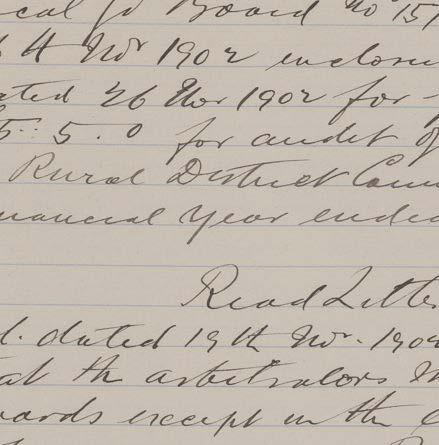 cal Gt Board No 151
4 Novr 1902 enclosin
ated 26 Nov 1902 for
5: 5. 0 for audit of
Rural District Coun
inancial year ended
Read Letter
d. dated 19th Novr. 1902
at the arbitrators
wards except in the